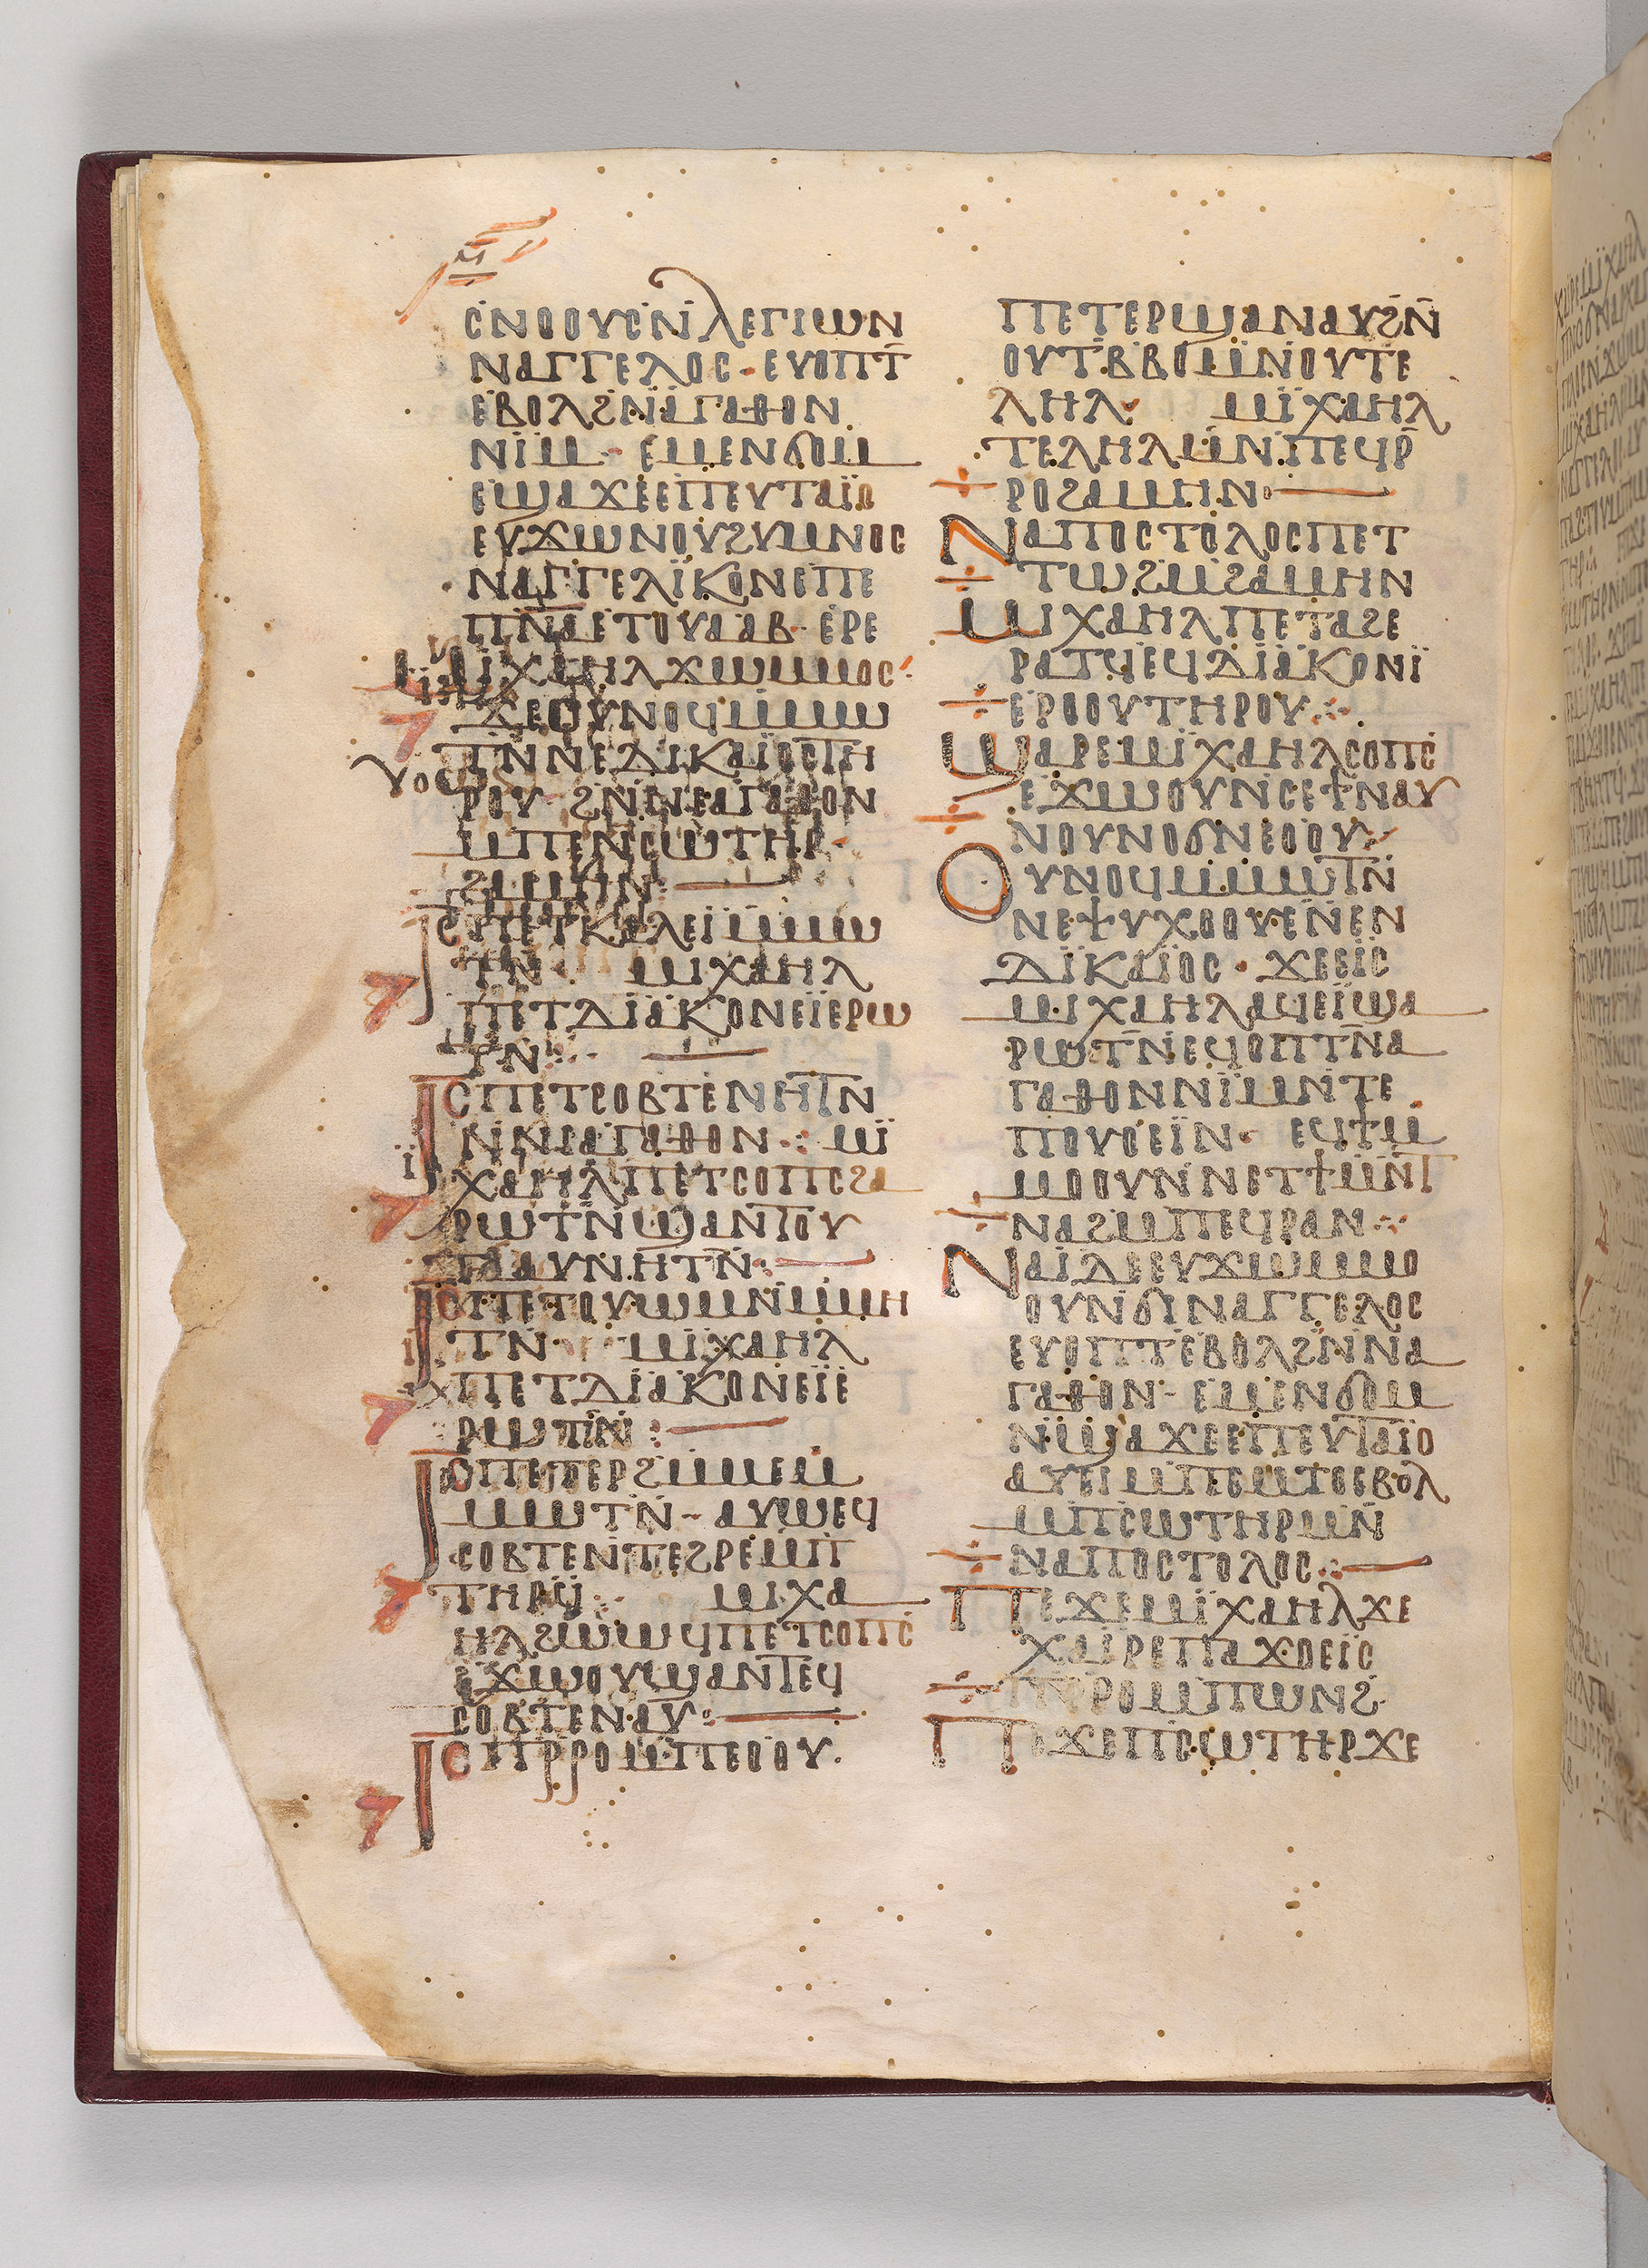 ⲙ̅
ⲥⲛⲟⲟⲩⲥⲛ̄ⲗⲉⲅⲓⲱⲛ
ⲛⲁⲅⲅⲉⲗⲟⲥ · ⲉⲩⲟⲡⲧ̄
ⲉⲃⲟⲗϩⲛ̄ⲁⲅⲁⲑⲟⲛ
ⲛⲓⲙ · ⲉⲙⲉⲛϭⲟⲙ
ⲉϣⲁϫⲉⲉⲡⲉⲩⲧⲁⲓ̈ⲟ
ⲉⲩϫⲱⲛⲟⲩϩⲩⲙⲛⲟⲥ
ⲛⲁⲅⲅⲉⲗⲓ̈ⲕⲟⲛⲉⲡⲉ
ⲡⲛ̅ⲁ̅ⲉⲧⲟⲩⲁⲁⲃ · ⲉⲣⲉ
ⲙⲓ̈ⲭⲁⲏⲗϫⲱⲙⲙⲟⲥ
ϫⲉⲟⲩⲛⲟϥⲙ̄ⲙⲱ
ⲧⲛ̄ⲛⲉⲇⲓ̈ⲕⲁⲓ̈ⲟⲥⲧⲏ
ⲣⲟⲩ · ϩⲛ̄ⲛⲉⲁⲅⲁⲑⲟⲛ
ⲙⲡⲉⲛⲥⲱⲧⲏⲣ
ϩⲁⲙⲏⲛ
ⲓⲥ̅ⲡⲉⲧⲕⲁⲗⲉⲓ̈ⲙ̄ⲙⲱ
ⲧⲛ̄ · ⲙⲓⲭⲁⲏⲗ
ⲡⲉⲧⲇⲓ̈ⲁⲕⲟⲛⲉⲓ̈ⲉⲣⲱ
ⲧⲛ̄
ⲓⲥ̅ⲡⲉⲧⲥⲟⲃⲧⲉⲛⲏⲧⲛ̄
ⲛ̄ⲛⲓⲁⲅⲁⲑⲟⲛ · ⲙⲓ̈
ⲭⲁⲏⲗⲡⲉⲧⲥⲟⲡⲥϩⲁ
ⲣⲱⲧⲛ̄ϣⲁⲛⲧⲟⲩ
ⲧⲁⲁⲩⲛⲏⲧⲛ̄
ⲓⲥ̅ⲡⲉⲧⲟⲩⲱⲙⲛⲙ̄ⲙⲏ
ⲧⲛ̄ · ⲙⲓⲭⲁⲏⲗ
ⲡⲉⲧⲇⲓ̈ⲁⲕⲟⲛⲉⲓ̈ⲉ
ⲣⲱⲧⲛ̄
ⲓⲥ̅ⲡⲉⲧⲉⲣϩⲙ̄ⲙⲉⲙ̄
ⲙⲱⲧⲛ̄ · ⲁⲩⲱⲉϥ
ⲥⲟⲃⲧⲉⲛⲧⲉϩⲣⲉⲙⲡ
ⲧⲏⲣϥ̄ · ⲙⲓⲭⲁ
ⲏⲗϩⲱⲱϥⲡⲉⲧⲥⲟⲡⲥ
ⲉϫⲱⲟⲩϣⲁⲛⲧⲉϥ
ⲥⲟⲃⲧⲉⲛⲁⲩ
ⲓⲥ̅ⲡⲣ̄ⲣⲟⲙⲡⲉⲟⲟⲩ
ⲡⲉⲧⲉⲣϣⲁⲛⲁⲩϩⲛ̄
ⲟⲩⲧⲃ̄ⲃⲟⲙⲛ̄ⲟⲩⲧⲉ
ⲗⲏⲗ · ⲙⲓ̈ⲭⲁⲏⲗ
ⲧⲉⲗⲏⲗⲙⲛ̄ⲡⲉϥⲣ̄
ⲣⲟϩⲁⲙⲏⲛ
ⲛⲁⲡⲟⲥⲧⲟⲗⲟⲥⲡⲉⲧ
ⲧⲱϩⲙϩⲁⲙⲏⲛ
ⲙⲓⲭⲁⲏⲗⲡⲉⲧⲁϩⲉ
ⲣⲁⲧϥⲉϥⲇⲓ̈ⲁⲕⲟⲛⲓ̈
ⲉⲣⲟⲟⲩⲧⲏⲣⲟⲩ
ϣⲁⲣⲉⲙⲓ̈ⲭⲁⲏⲗⲥⲟⲡⲥ̄
ⲉϫⲱⲟⲩⲛⲥⲉϯⲛⲁⲩ
ⲛⲟⲩⲛⲟϭⲛⲉⲟⲟⲩ
ⲟⲩⲛⲟϥⲙ̄ⲙⲱⲧⲛ̄
ⲛⲉⲯⲩⲭⲟⲟⲩⲉⲛ̄ⲉⲛ
ⲇⲓ̈ⲕⲁⲓ̈ⲟⲥ · ϫⲉⲉⲓ̈ⲥ
ⲙⲓⲭⲁⲏⲗⲁϥⲉⲓ̈ϣⲁ
ⲣⲱⲧⲛ̄ⲉϥⲟⲡⲧⲛ̄ⲁ
ⲅⲁⲑⲟⲛⲛⲓ̈ⲙⲛ̄ⲧⲉ
ⲡⲟⲩⲟⲉⲓ̈ⲛ · ⲉϥϯⲙ̄
ⲙⲟⲟⲩⲛ̄ⲛⲉⲧϯⲙⲛ̄ⲧ
ⲛⲁϩⲙⲡⲉϥⲣⲁⲛ
ⲛⲁⲓ̈ⲇⲉⲉⲩϫⲱⲙⲙⲟ
ⲟⲩⲛ̄ϭⲓⲛⲁⲅⲅⲉⲗⲟⲥ
ⲉⲩⲟⲡⲧⲉⲃⲟⲗϩⲛ̄ⲛⲁ
ⲅⲁⲑⲟⲛ · ⲉⲙⲉⲛϭⲟⲙ
ⲛ̄ϣⲁϫⲉⲉⲡⲉⲩⲧⲁⲓ̈ⲟ
ⲁⲩⲉⲓⲙⲡⲉⲙⲧⲟⲉⲃⲟⲗ
ⲙⲡⲥⲱⲧⲏⲣⲙⲛ̄
ⲛⲁⲡⲟⲥⲧⲟⲗⲟⲥ
ⲡⲉϫⲉⲙⲓ̈ⲭⲁⲏⲗϫⲉ
ⲭⲁⲓ̈ⲣⲉⲡⲁϫⲟⲉⲓ̈ⲥ
ⲡⲣ̄ⲣⲟⲙⲡⲱⲛϩ
ⲡⲉϫⲉⲡⲥⲱⲧⲏⲣϫⲉ